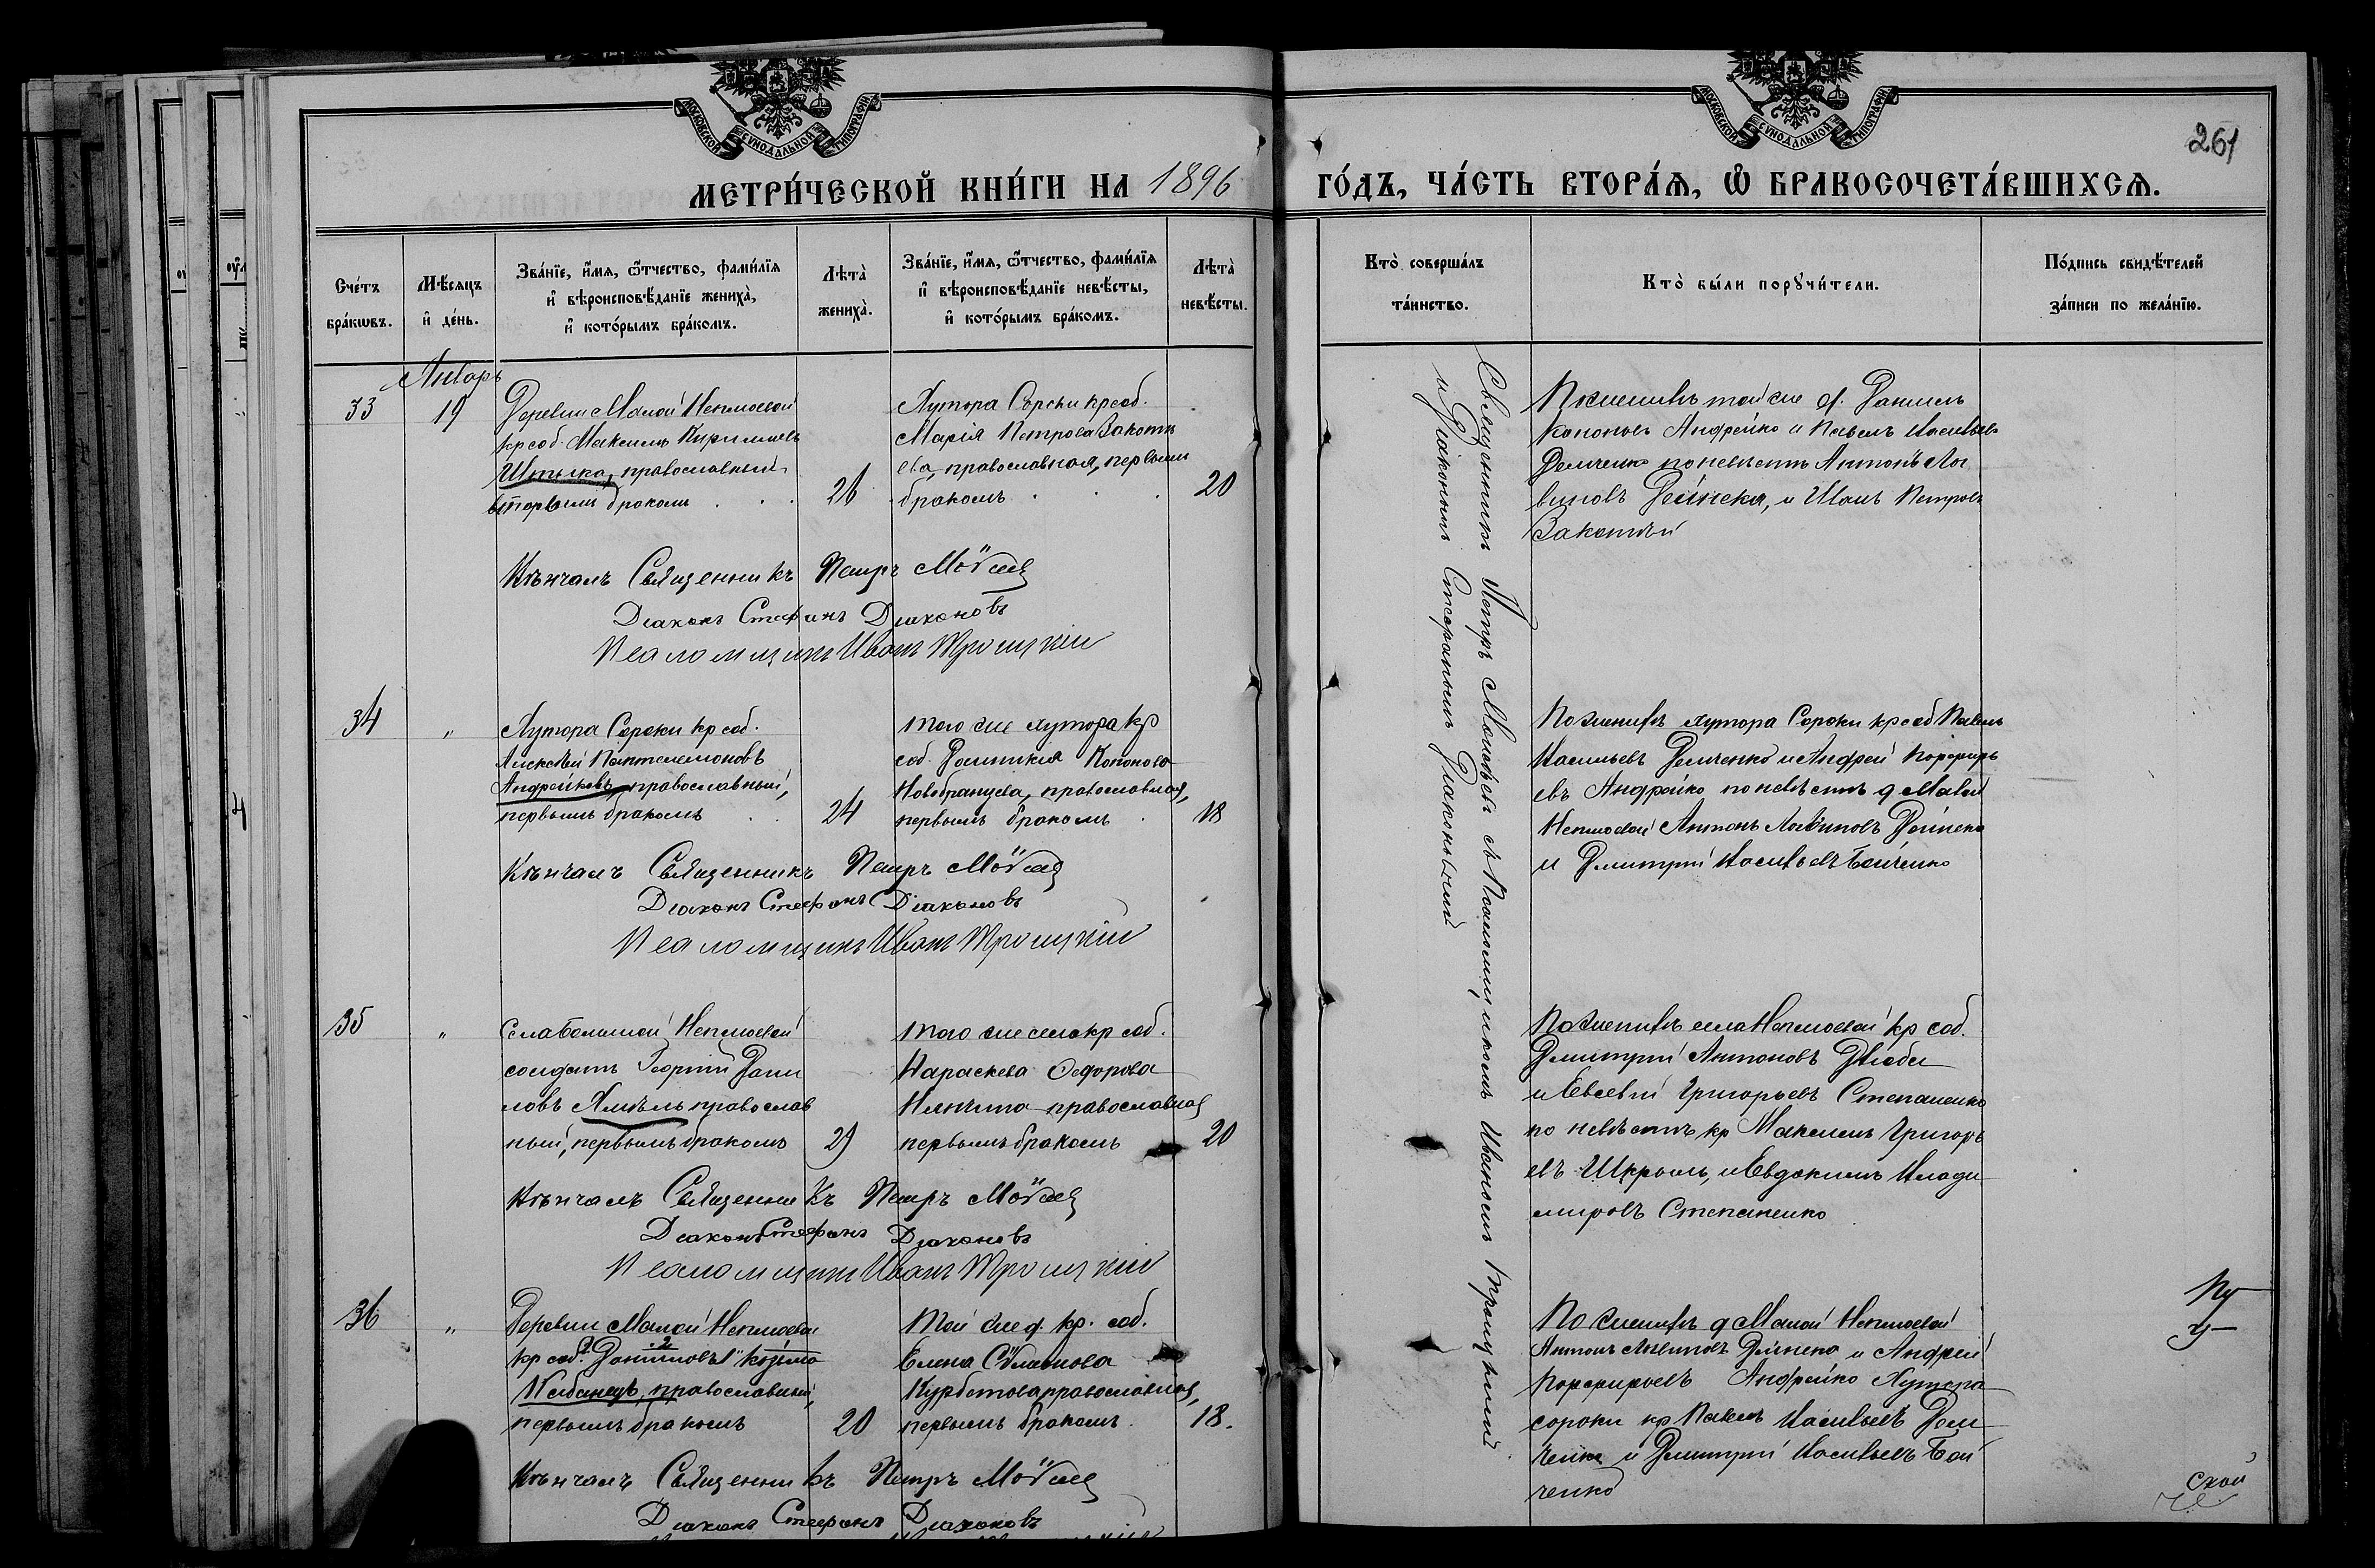 МОСКОВСКОЙ СУНОДАЛЬНОЙ ТИПОГРАФІИ
МОСКОВСКОЙ СУНОДАЛЬНОЙ ТИПОГРАФІИ
261
МЕТРИ́ЧЕСКОЙ КНИ́ГИ НА 1896 ГО́ДЪ, ЧА́СТЬ ВТОРА́Я, Ѽ БРАКОСОЧЕТА́ВШИХСЯ.
Сче́тъ бра́кωвъ.
Мѣ́сяцъ и҆ де́нь.
Зва́нїе, и҆́мя, ѻ҆́тчество, фами́лїя и҆ вѣроисповѣ́данїе жениха̀, и҆ кото́рымъ бра́комъ.
Лѣта̀ жениха̀.
Зва́нїе, и҆́мя, ѻ҆́тчество, фами́лїя и҆ вѣроисповѣ́данїе невѣ́сты, и҆ кото́рымъ бра́комъ.
Лѣта̀ невѣ́сты.
Кто̀ соверша́лъ та́инство.
Кто̀ бы́ли порꙋчи́тели.
По́дпись свидѣ́телей за́писи по жела́нїю.
Январь
33
19
Деревни Малой Неплюевой
кр соб. Максимъ Кириллов
православный
вторымъ бракомъ
26
Хутора Сороки кр соб.
Марія Петрова Закотн
ева, православная, первымъ
бракомъ
20
Священникъ Петръ Моѵсеевъ съ Псаломщикомъ Иваномъ Троицкимъ
и Діакономъ Стефаномъ Діаконовымъ
По женихѣ той же д. Даниилъ
Кононовъ Андрейко и Павелъ Васильев
Демченко по невѣстѣ Антонъ Лог
виновъ Дейнека, и Иванъ Петровъ
Закотній
Вѣнчалъ Священникъ Петръ Моѵсеевъ
Діаконъ Стефанъ Діаконовъ
Псаломщикъ Иванъ Троицкій
34
"
Хутора Сороки кр соб.
Алексѣй Пантелемоновъ
Андрейковъ, православный,
первымъ бракомъ
24
того же хутора кр
соб. Домникія Кононова
Новобранцева, православная,
первымъ бракомъ
18
По женихѣ хутора Сороки кр соб Павелъ
Васильевъ Демченко и Андрей Порфирь
евъ Андрейко по невѣстѣ д Малой
Неплюевой Антонъ Логвиновъ Дейнека
и Дмитрій Васильевъ Бойченко
Вѣнчалъ Священникъ Петръ Моѵсеевъ
Діаконъ Стефанъ Діаконовъ
Псаломщикъ Иванъ Троицкій
35
"
Села Большой Неплюевой
солдатъ Георгій Дани
ловъ Хмѣль православ
ный, первымъ бракомъ
29
того же села кр соб.
Параскева Ѳедорова
православная
первымъ бракомъ
20
По женихѣ села Неплюевой кр соб.
Дмитрій Антоновъ Дзюба
и Евсевій Григорьевъ Степаненко
по невѣстѣ кр Максимъ Григорь
евъ и Евдокимъ Влади
мировъ Степаненко
Вѣнчалъ Священникъ Петръ Моѵсеевъ
Діаконъ Стефанъ Діаконовъ
Псаломщикъ Иванъ Троицкій
36
"
Деревни Малой Неплюевой
кр соб. Даниловъ Козьма
православный,
первымъ бракомъ
20
той же д. кр. соб.
Елена
Курбатова православная,
первымъ бракомъ
18.
По женихѣ д Малой Неплюевой
Антонъ Логвиновъ Дейнека и Андрей
Порфирьевъ Андрейко Хутора
сороки кр Павелъ Васильевъ Дем
ченко и Дмитрій Васильевъ Бой
ченко
Вѣнчалъ Священникъ Петръ Моѵсеевъ
Діаконъ Стефанъ Діаконовъ
ской